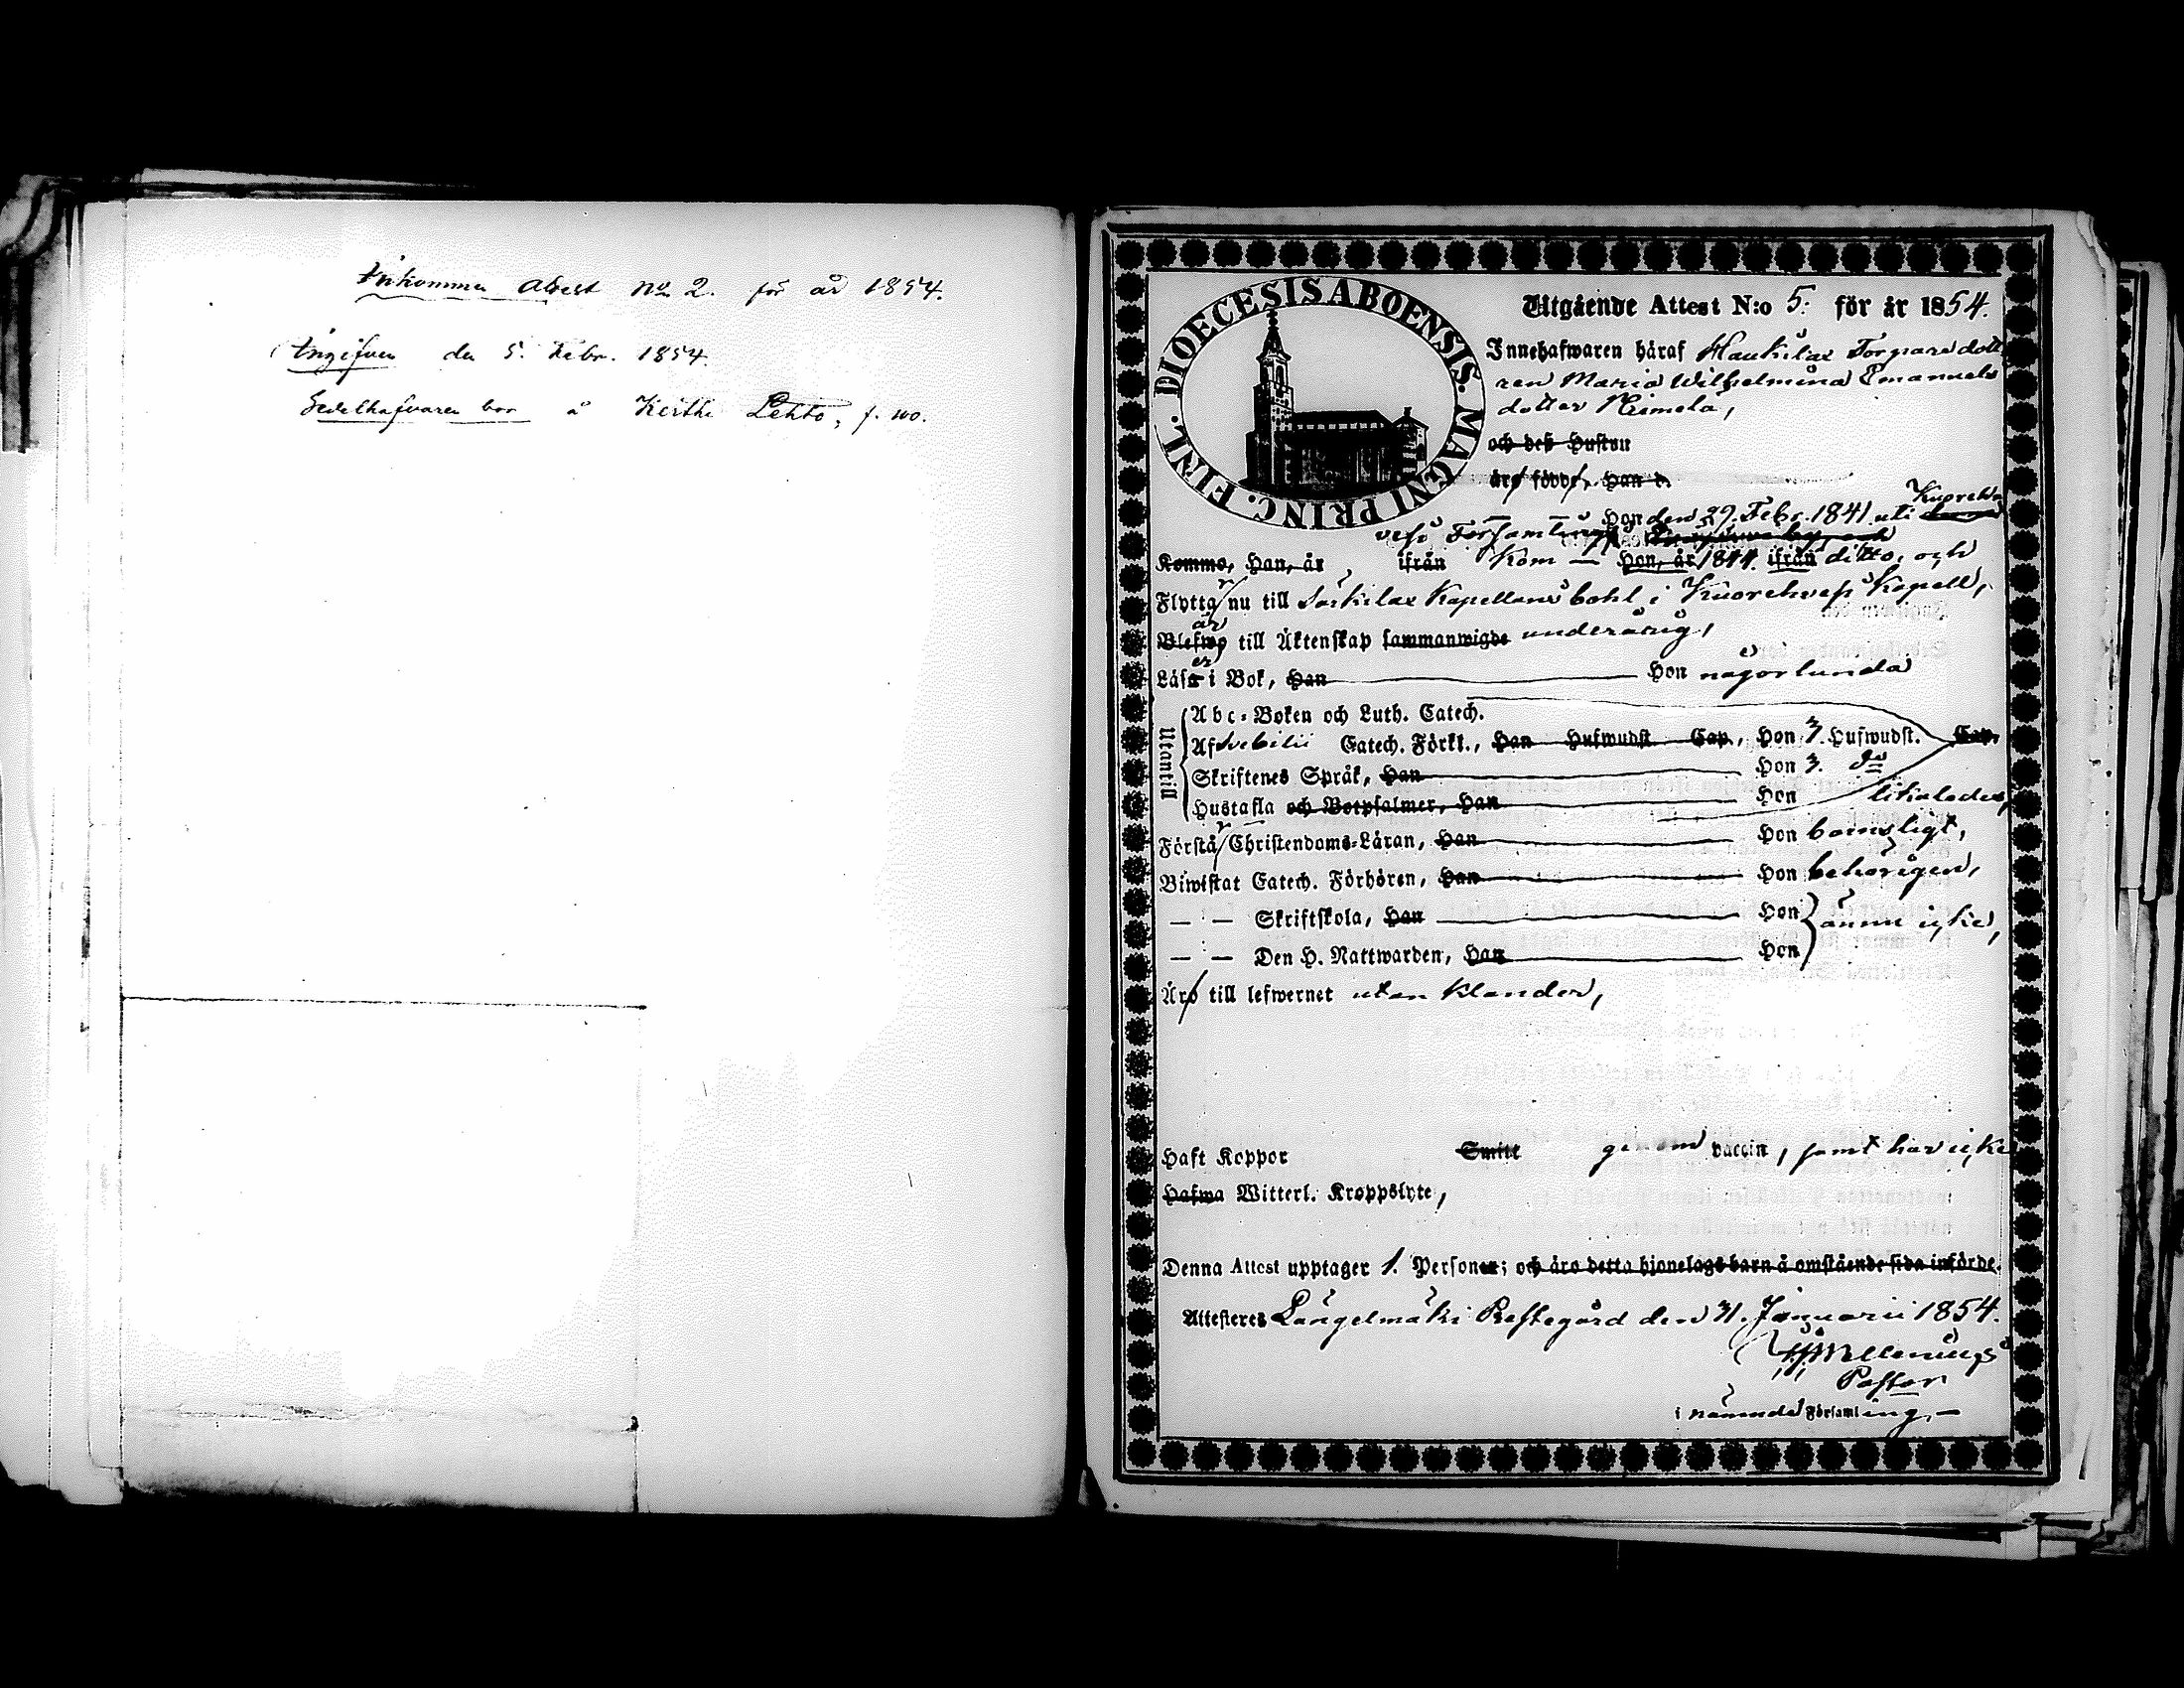 Inkommen Attest No 2. för år 1854.
Angifven den 5. Febr. 1854.
Sedelhafvaren bor å Keithi Lehto, f. 110.
DIOECESIS ABOENSIS. MAGNI PRINC. FINL.
Utgående Attest N:o 5. för år 1854.
Innehafwaren häraf Haukilax Torparedott
ren Maria Wilhelmina Emanuels
dotter Niemelä,
och deß Hustru
äro födde, Han d.
Hon den 27. Febr. 1841 uti Kuoreh
vesi Församling
Komne, Han, år ifrån Kom — Hon, år 1844. ifrån ditto, och
Flyttar nu till Särkilax Kapellansbohl i Kuorehvesi Kapell,
är
Blefwo till Äktenskap sammanwigde underårig,
Läser i Bok, Han Hon någorlunda
Utantill
Abc-Boken och Luth. Catech.
Af Svebilii Catech. Förkl., Han Hufwudst. Cap., Hon 3. Hufwudst. Cap.
Skriftenes Språk, Han Hon 3. do
Hustafla och Botpsalmer, Han Hon likaledes,
Förstår Christendoms-Läran, Han Hon barnsligt,
Biwistat Catech. Förhören, Han Hon behörigen,
— — Skriftskola, Han Hon ännu icke,
— — Den H. Nattwarden, Han Hon
Äro till lefwernet utan klander,
Haft Koppor Smitt genom vaccin, samt har icke
Hafwa Witterl. Kroppslyte,
Denna Attest upptager 1. Personer; och äro detta hjonelags barn å omstående sida införde.
Attesteres Längelmäki Prestegård den 31. Januarii 1854.
Pastor
i nämnde Församling. —